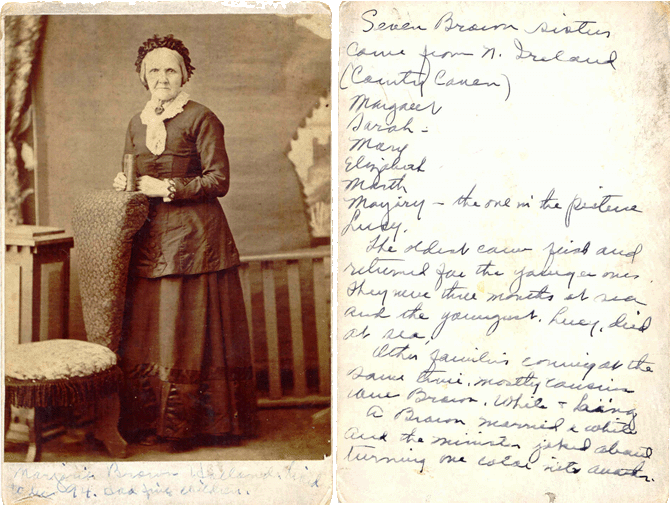 Seven Brown sisters
came from N. Ireland
(County Cavan)
Margaret
Sarah -
Mary
Elizabeth
Marth
Mayiry - the one in the picture
Lucy.
The oldest came first and
returned for the younger ones.
They were three months at sea
and the youngest, Lucy, died
at sea.
Other families coming at the
same time, mostly cousins
were Brown, White &
A Brown married a White
and the minister joked about
turning one color into another.
Brown
94. had five children.